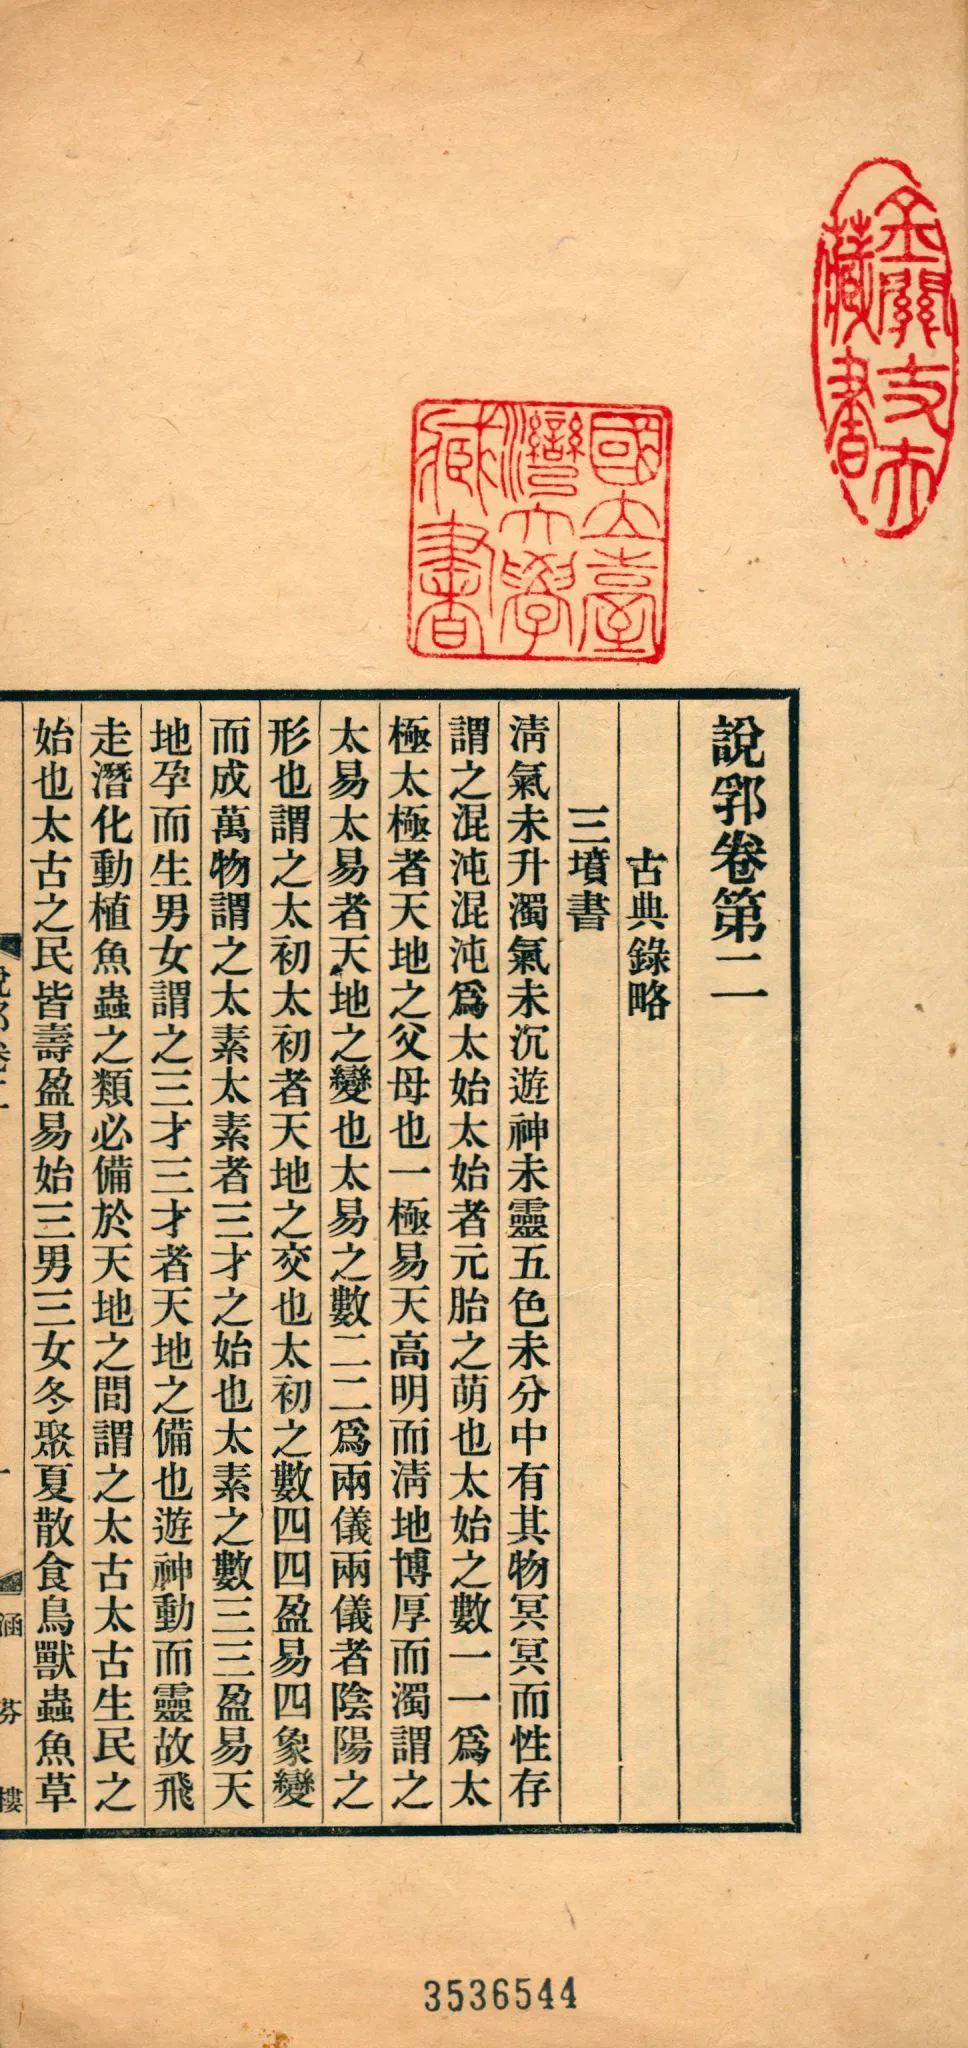 金關丈夫
藏書
國立臺
灣大學
藏書
說郛卷第二
古典錄略
三墳書
淸氣未升濁氣未沉遊神未靈五色未分中有其物冥冥而性存
謂之混沌混沌爲太始太始者元胎之萌也太始之數一一爲太
極太極者天地之父母也一極易天高明而淸地博厚而濁謂之
太易太易者天地之變也太易之數二二爲兩儀兩儀者陰陽之
形也謂之太初太初者天地之交也太初之數四四盈易四象變
而成萬物謂之太素太素者三才之始也太素之數三三盈易天
地孕而生男女謂之三才三才者天地之備也遊神動而靈故飛
走潛化動植魚蟲之類必備於天地之間謂之太古太古生民之
始也太古之民皆壽盈易始三男三女冬聚夏散食鳥獸蟲魚草
說郛卷二
一
涵芬樓
3536544